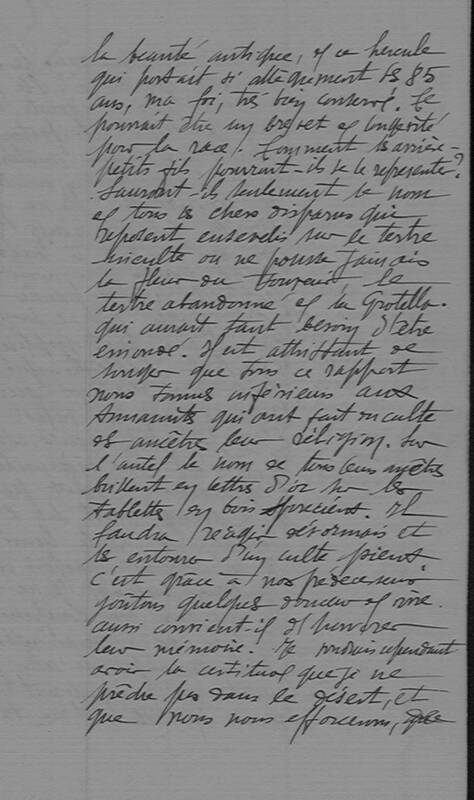 la beauté antique, et ce hercule
qui portait si allègrement ses 85
ans, ma foi, très bien conservé. Ce
pourrait être un brevet de longévité
pour la race. Comment les arrière-
petits fils pourront-ils se le représenter?
Sauront-ils seulement le nom
de tous les chers disparus qui
reposent ensevelis sur le tertre
inculte ou ne pousse jamais
la fleur du souvenir le
tertre abandonné de la Grotella.
qui aurait tant besoin d'être
émondé. Il est attristant de
songer que sous ce rapport
nous sommes inférieurs aux
Annamites qui ont fait du culte
des ancêtres leur réligion. Sur
l'autel le nom de tous leurs
brillent en lettres d'or sur les
tablettes en bois précieux. Il
faudra réagir désormais et
les entourer d'un culte pieux
c'est grace à nos prédecesseurs
goutons quelques douceur de vivre.
aussi convient-il d'honorer
leur mémoire. Je voudrais cependant
avoir la certitude que je ne
prêche pas dans le désert, et
que nous nous efforcerons,